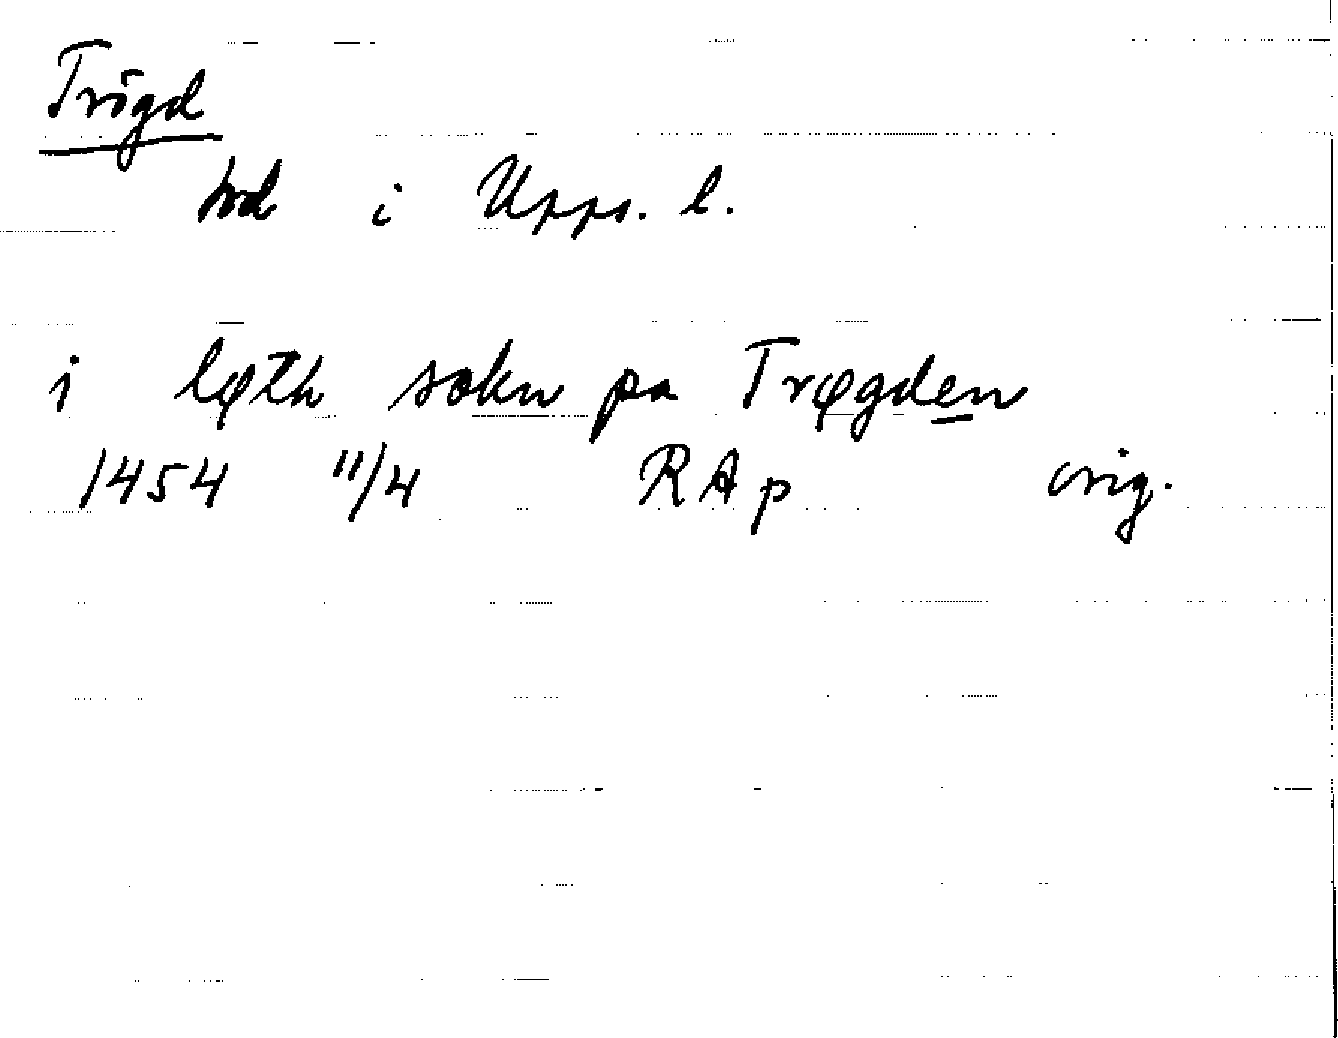 Trögd
hd i Upps. l.
i løth sokn pa Trøgden
1454 11/4 RAp orig.